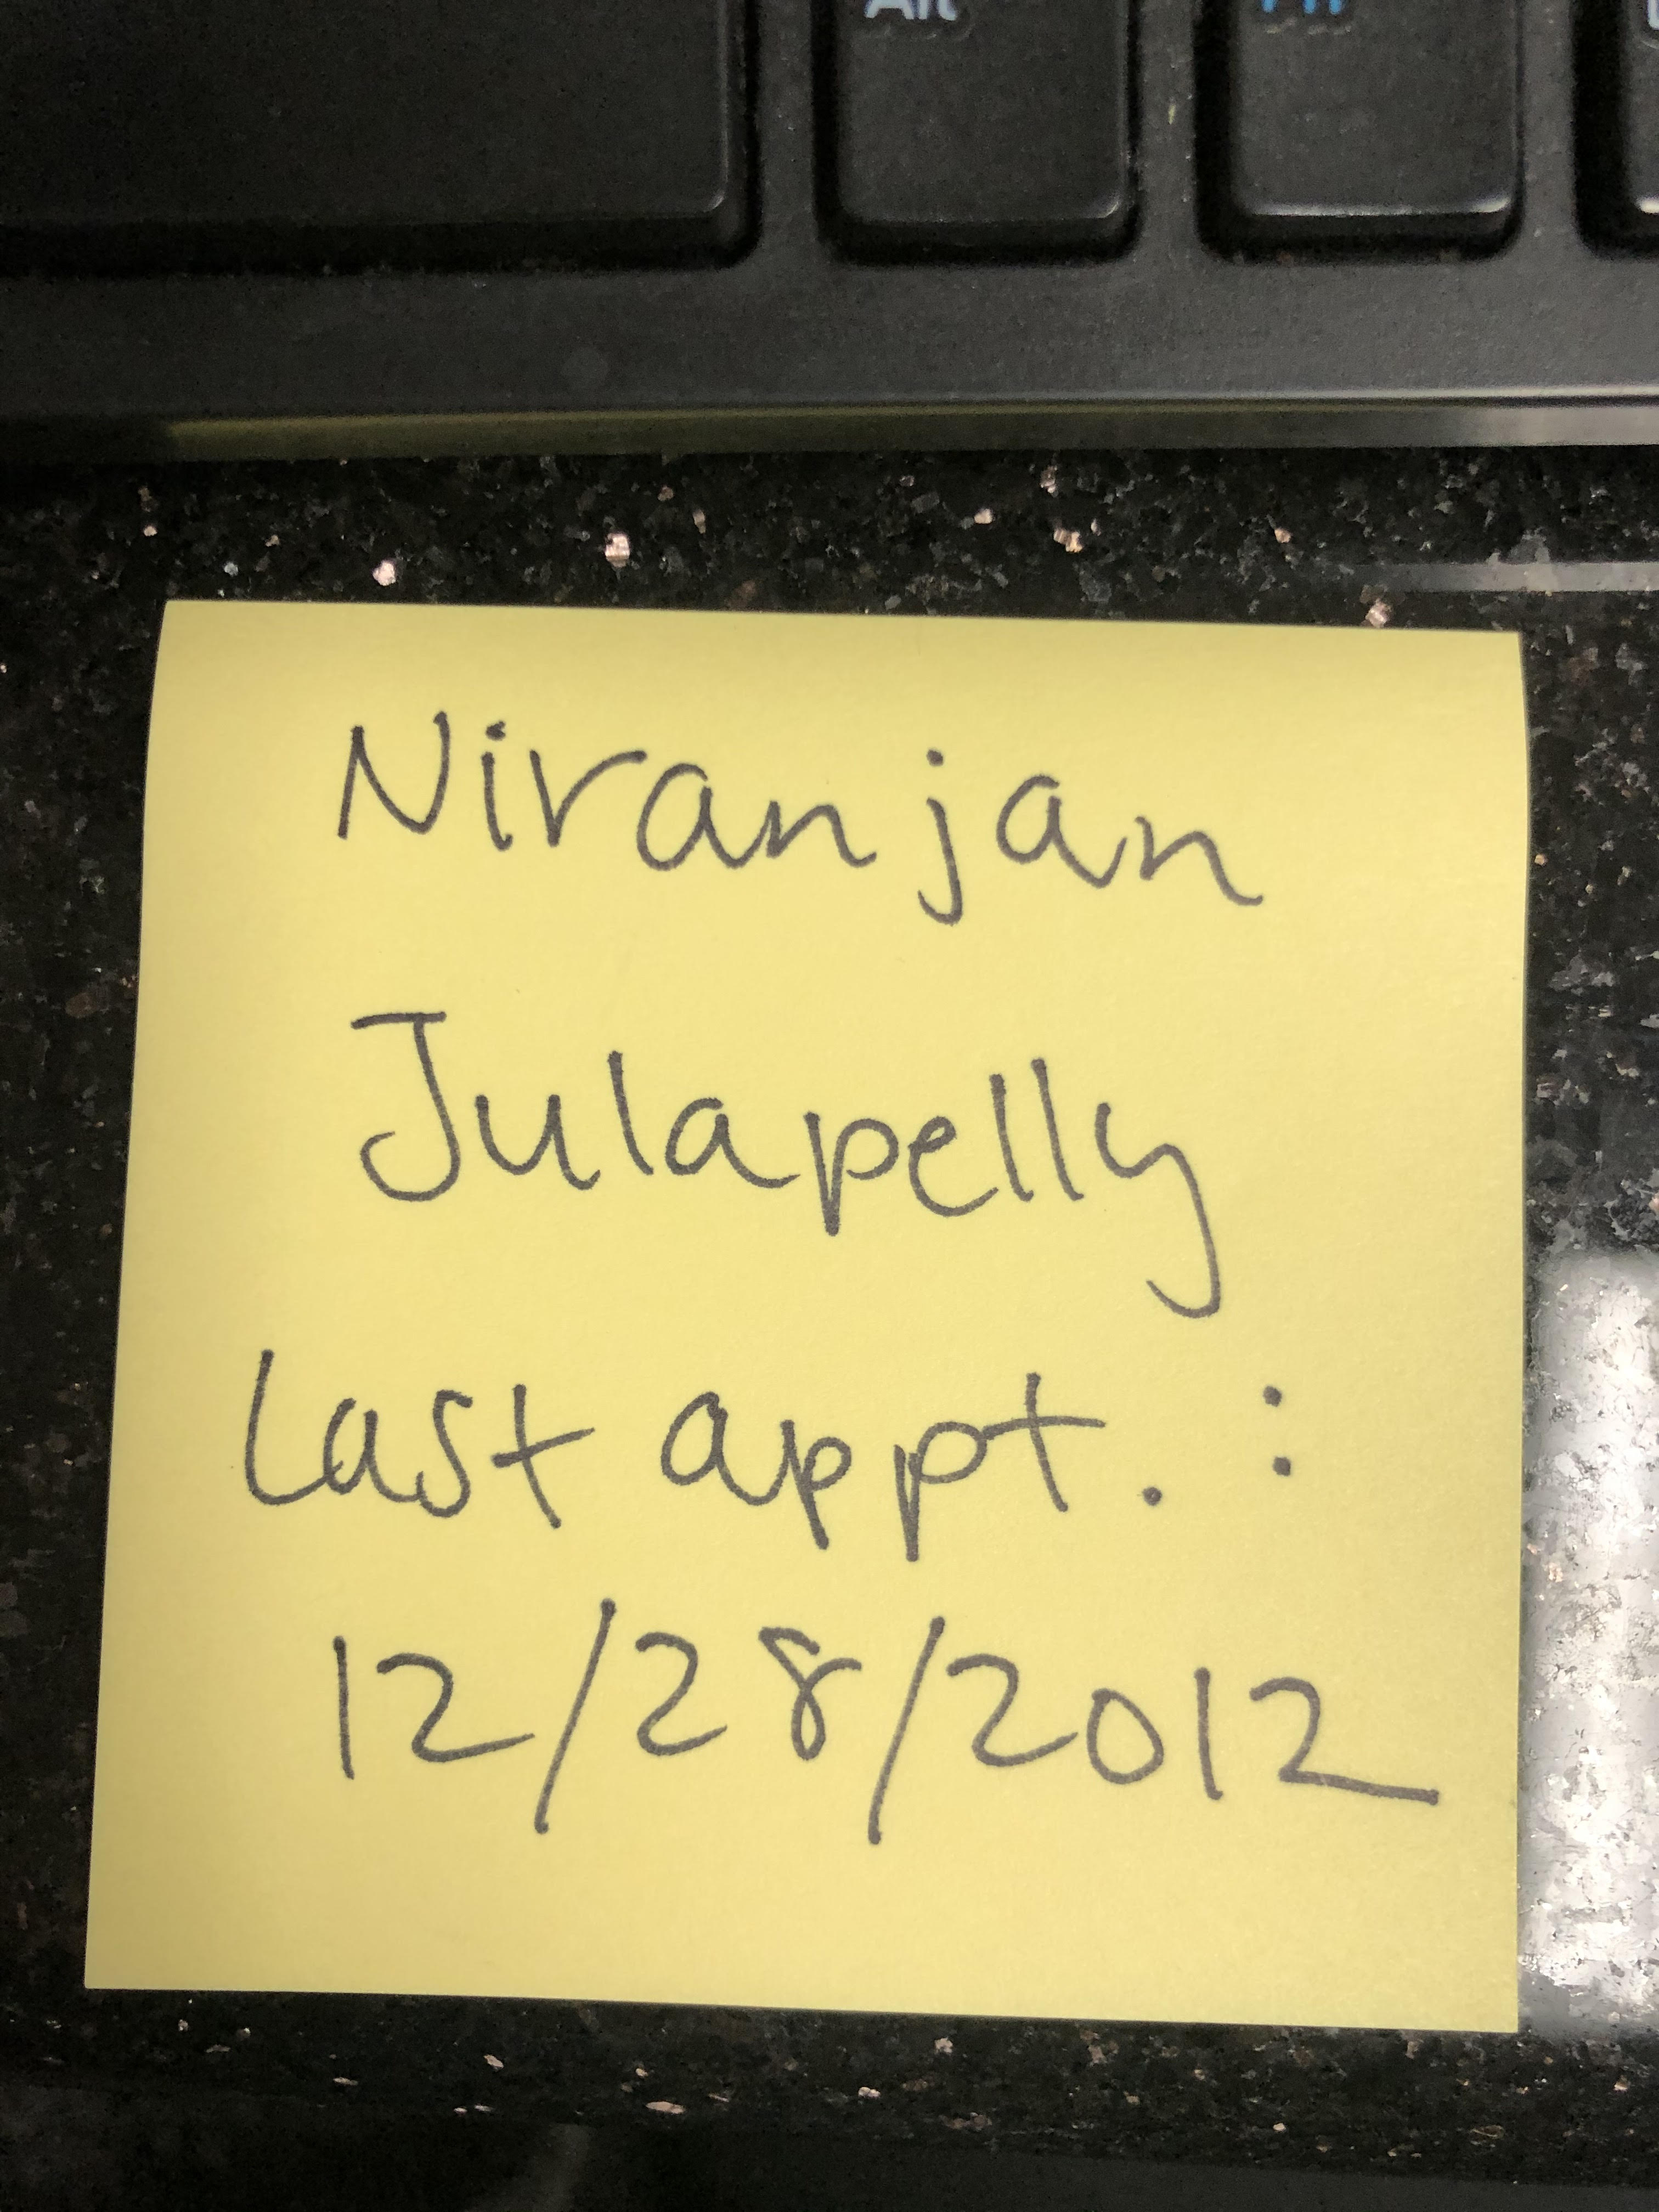 Alt
Niranjan
Julapelly
Last appt. :
12/28/2012